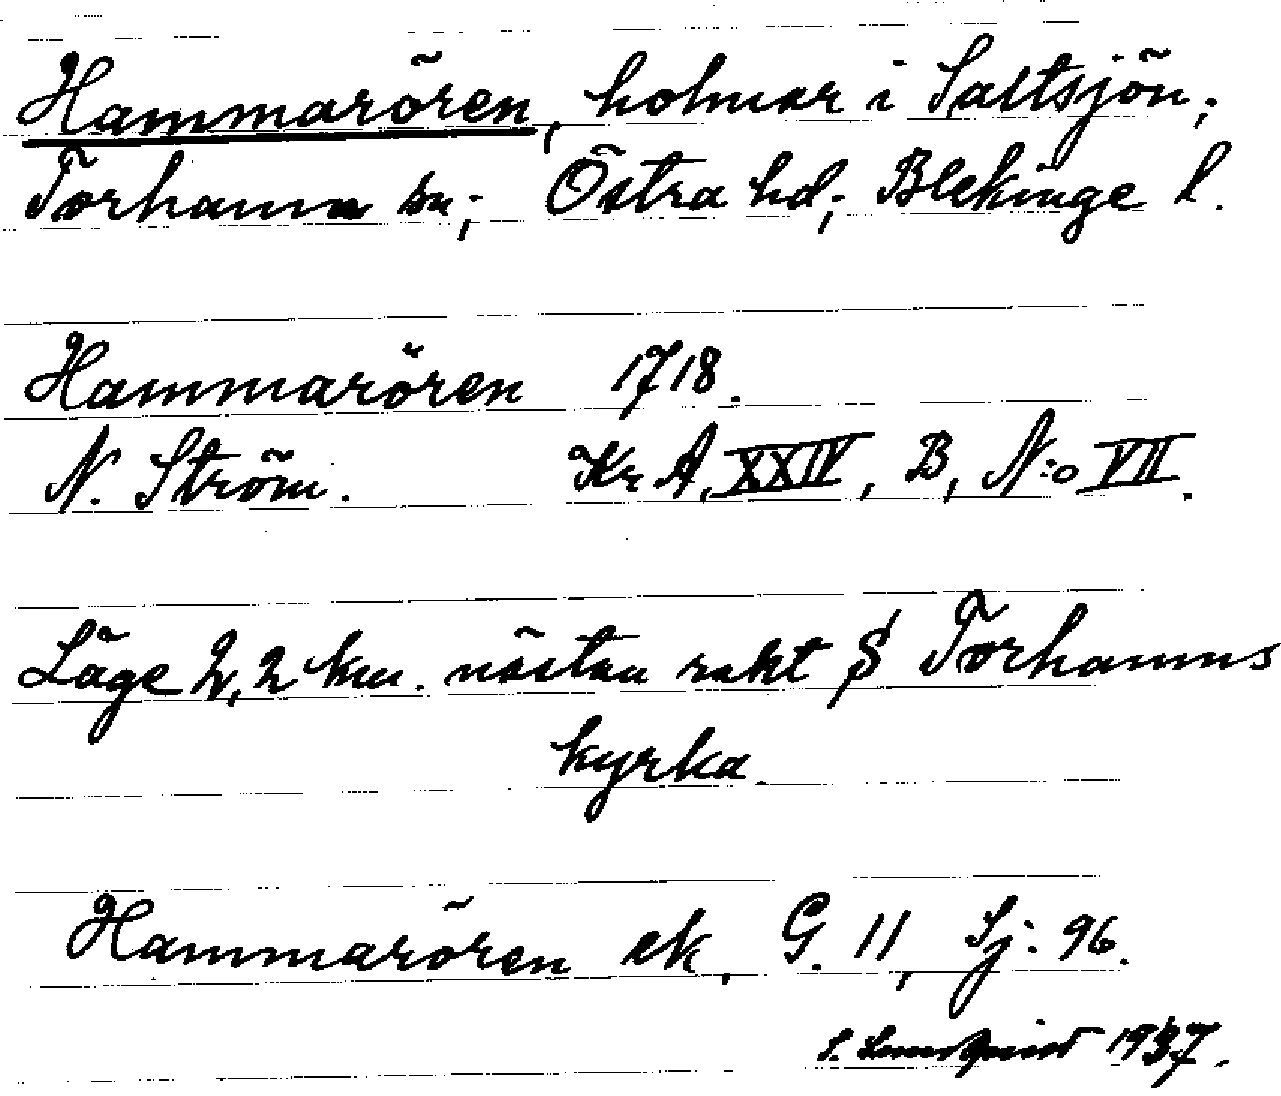 Hammarören, holmar i Saltsjön;
Torhamn sn; Östra hd; Blekinge l.
Hammarören 1718.
N. Ström. Kr A, XXIV, B, N:o VII.
Läge 2,2 km. nästan rakt S Torhamns
kyrka.
Hammarören ek, G. 11, Sj: 96.
S. Lundquist 1937.